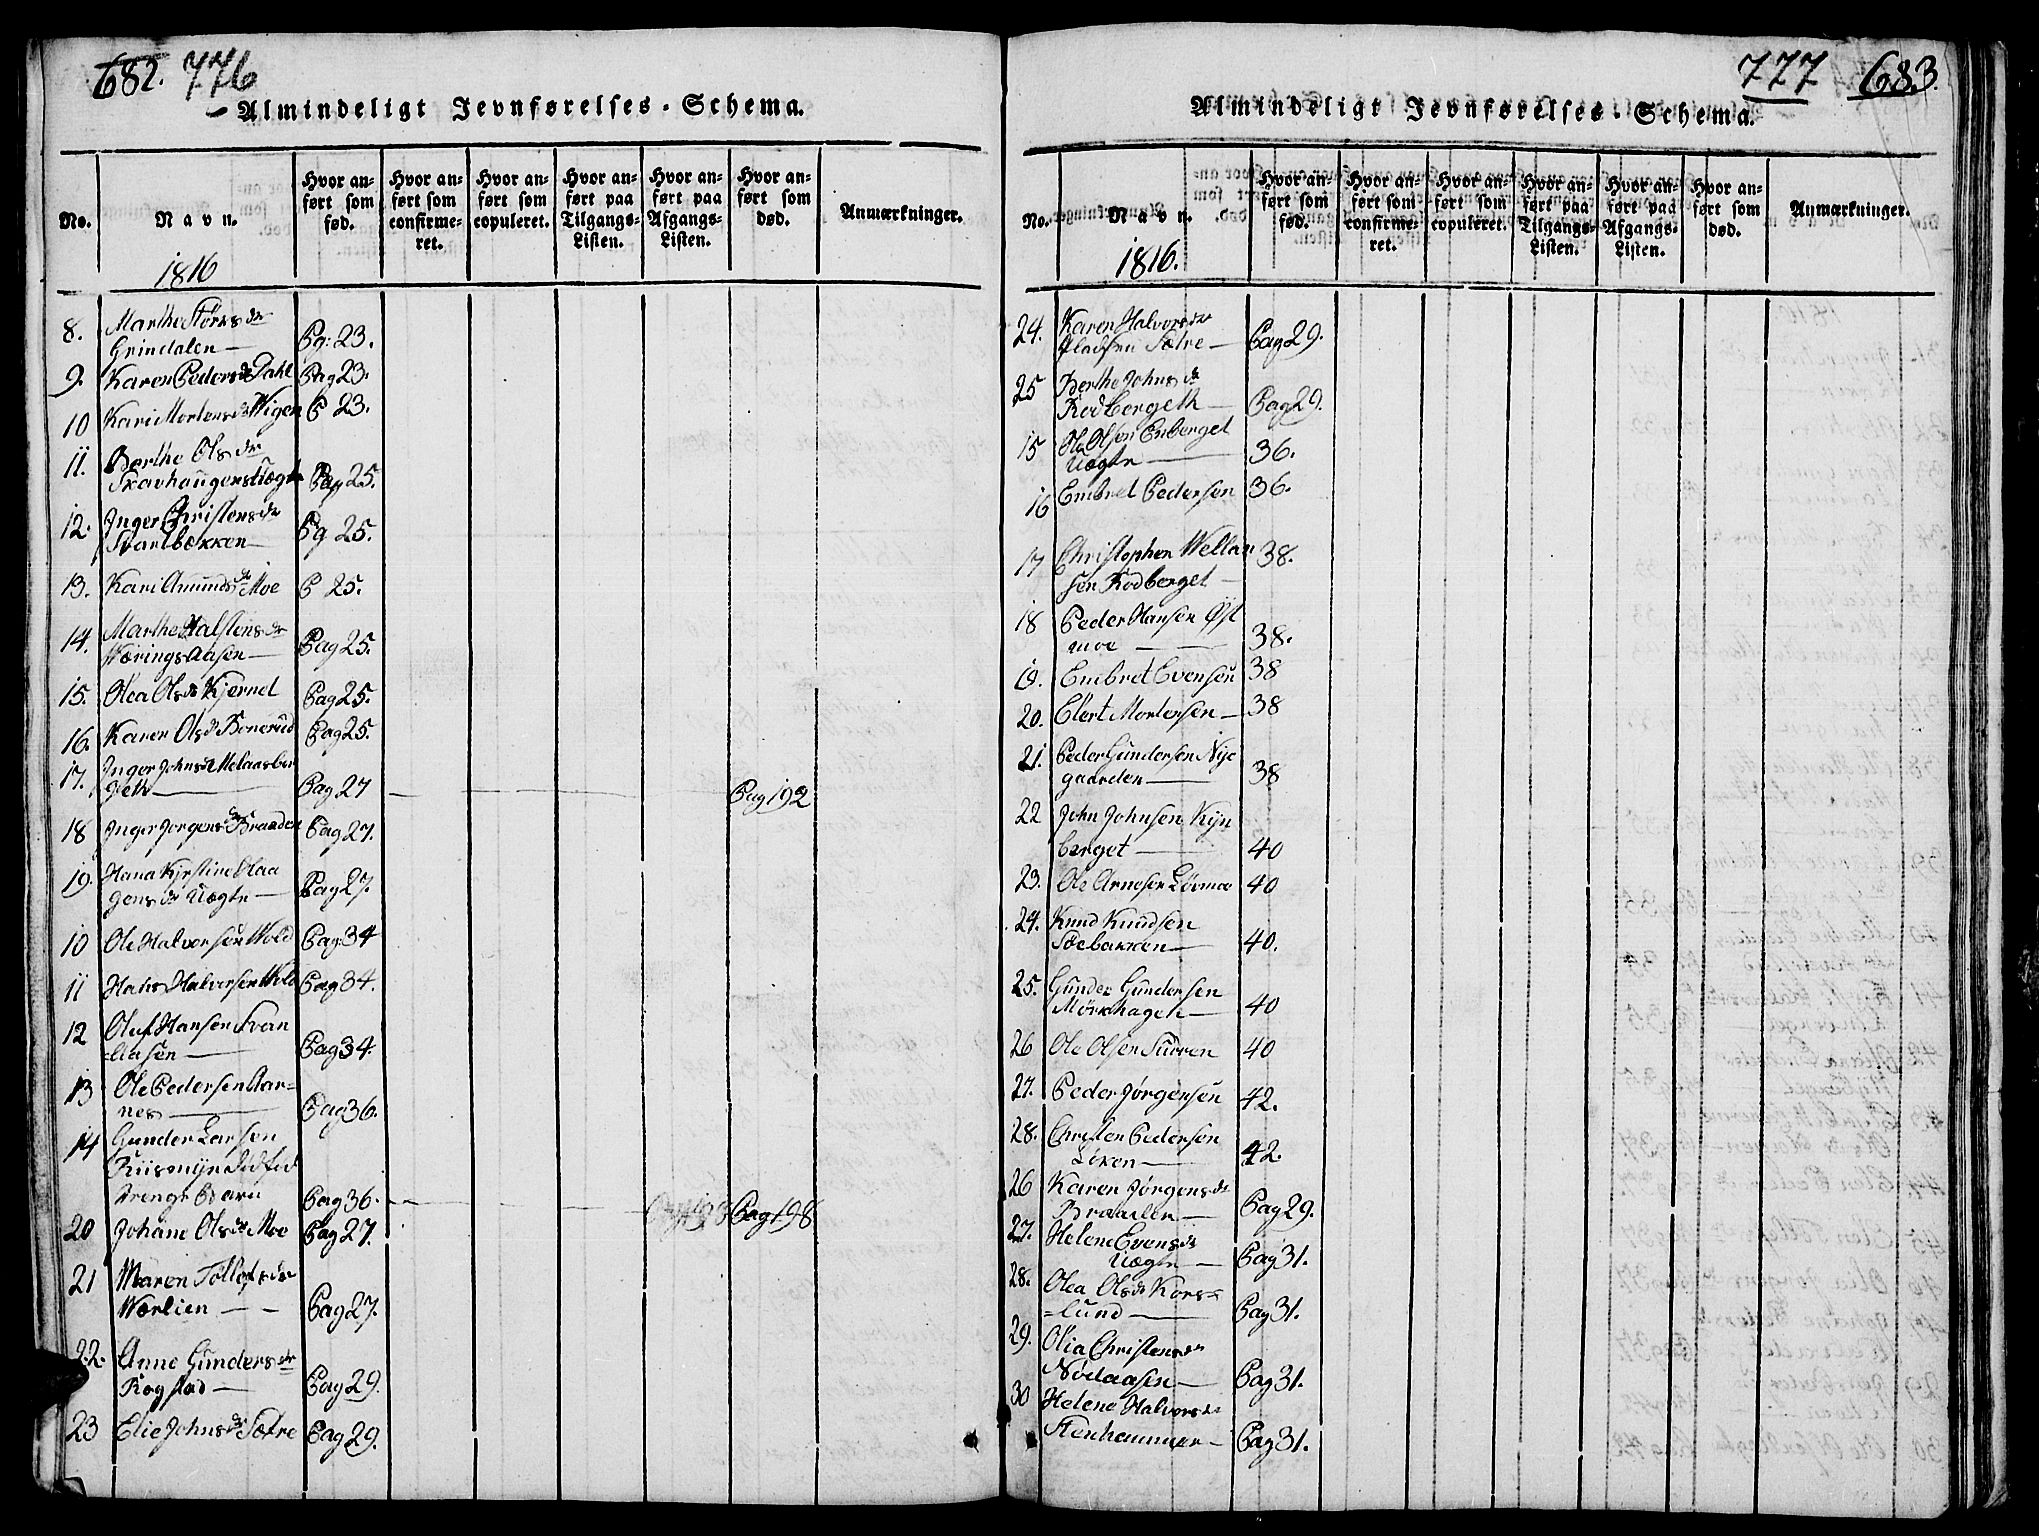 682. 776
Almindeligt Jevnførelses-Schema.
No. Navn. Hvor anført som fød. Hvor anført som confirmeret. Hvor anført som copuleret. Hvor anført paa Tilgangs-Listen. Hvor anført paa Afgangs-Listen. Hvor anført som død. Anmærkninger.
1816
8. Marthe Størksdr
Grindalen Pg: 23.
9. Karen Pedersdr Dahl Pag 23.
10 Kari Mortensdr Wigen P 23.
11. Berthe Olsdr
Skavhaugens Pag 25.
12. Inger Christensdr
Svartbækken Pg 25.
13. Kari Amundsdr Moe P 25.
14. Marthe Halstensdr
Wæringsaasen Pag 25.
15. Olea Olsdr Kjernet Pag 25.
16. Karen Olsdr Bonerud Pag 25.
17. Inger Johnsdr Melaasber
geth Pag 27 Pag 192
18 Inger Jorgensdr Braaden Pag 27.
19. Hana Kjrstine Haa
gensdr Uægte Pag 27.
10 Ole Halvorsen Wold Pag 34
11 Hans Halvorsen Wold Pag 34.
12 Oluf Hansen Svan
aasen Pag 34.
13 Ole Pedersen Aar=
nes Pag 36.
14 Gunder Larsen
Riismyr dødfød
Drenge Barn Pag 36. Pag 198
20 Johane Olsdr Moe Pag 27.
21 Maren Tollefsdr
Wærlien Pag 27.
22. Anne Gundersdr
Rogstad Pag 29.
23 Elie Johnsdr Sætre Pag 29.
777 683.
Almindeligt Jevnførelses-Schema.
No. Navn. Hvor anført som fød. Hvor anført som confirmeret. Hvor anført som copuleret. Hvor anført paa Tilgangs-Listen. Hvor anført paa Afgangs-Listen. Hvor anført som død. Anmærkninger.
1816.
24. Karen Halvorsdr
Pladsen Sætre Pag 29.
25 Berthe Johnsdr
Rodbergeth Pag 29.
15 Ole Olsen Enberget
Uægte 36.
16 Embret Pedersen 36.
17 Christopher Wellar
sen Rodberget 38.
18 Peder Hansen Øst
moe 38.
19. Embret Evensen 38
20. Elert Mortersen 38
21. Peder Gundersen Nye
gaarden 38
22 John Johnsen Kyn
berget 40
23. Ole Arnesen Løvmoe 40
24. Knud Knudsen
Sæbakken 40.
25. Gunder Gundersen
Mørkhagen 40
26 Ole Olsen Surren 40
27. Peder Jørgensen 42.
28. Christen Pedersen
Løken 42.
26 Karen Jørgensdr
Braaden Pag 29.
27. Helene Evensdr
Uægte Pag 31.
28. Olea Olsdr Kors=
=lund Pag 31.
29. Olia Christensdr
Nødaasen Pag 31.
30 Helene Halvorsdr
Stenhammer Pag 31.